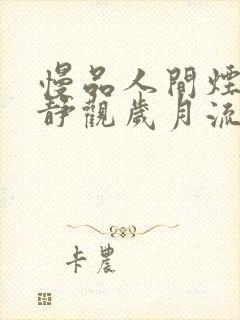 慢品人間煙
靜觀歲月流
卡農